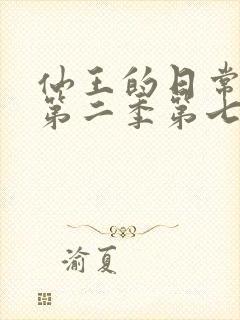 仙王的日常
第二季第七
渝夏